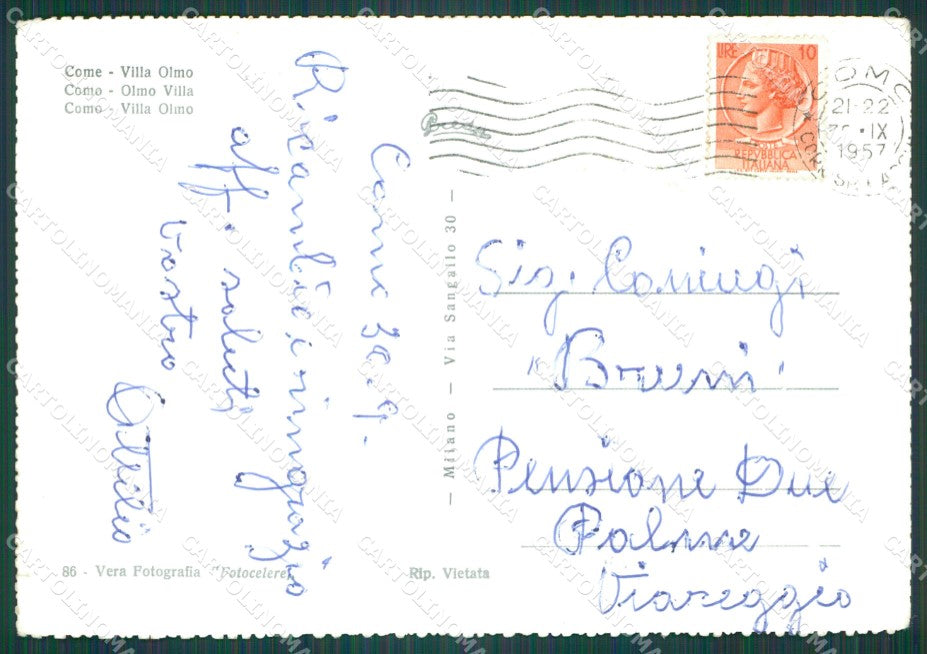 Come - Villa Olmo
Como - Olmo Villa
Como - Villa Olmo
Como 30.9.
Ricambio, i ringrazio
aff. saluti
vostro
Attilio
86 - Vera Fotografia "Fotocelere"
Rip. Vietata
— Milano — Via Sangallo 30 —
LIRE 10
REPVBBLICA
ITALIANA
COMO
21-22
30·IX
1957
Sig. Coniugi
"Bruni"
Pensione Due
Palme
Viareggio
CARTOLINOMANIA